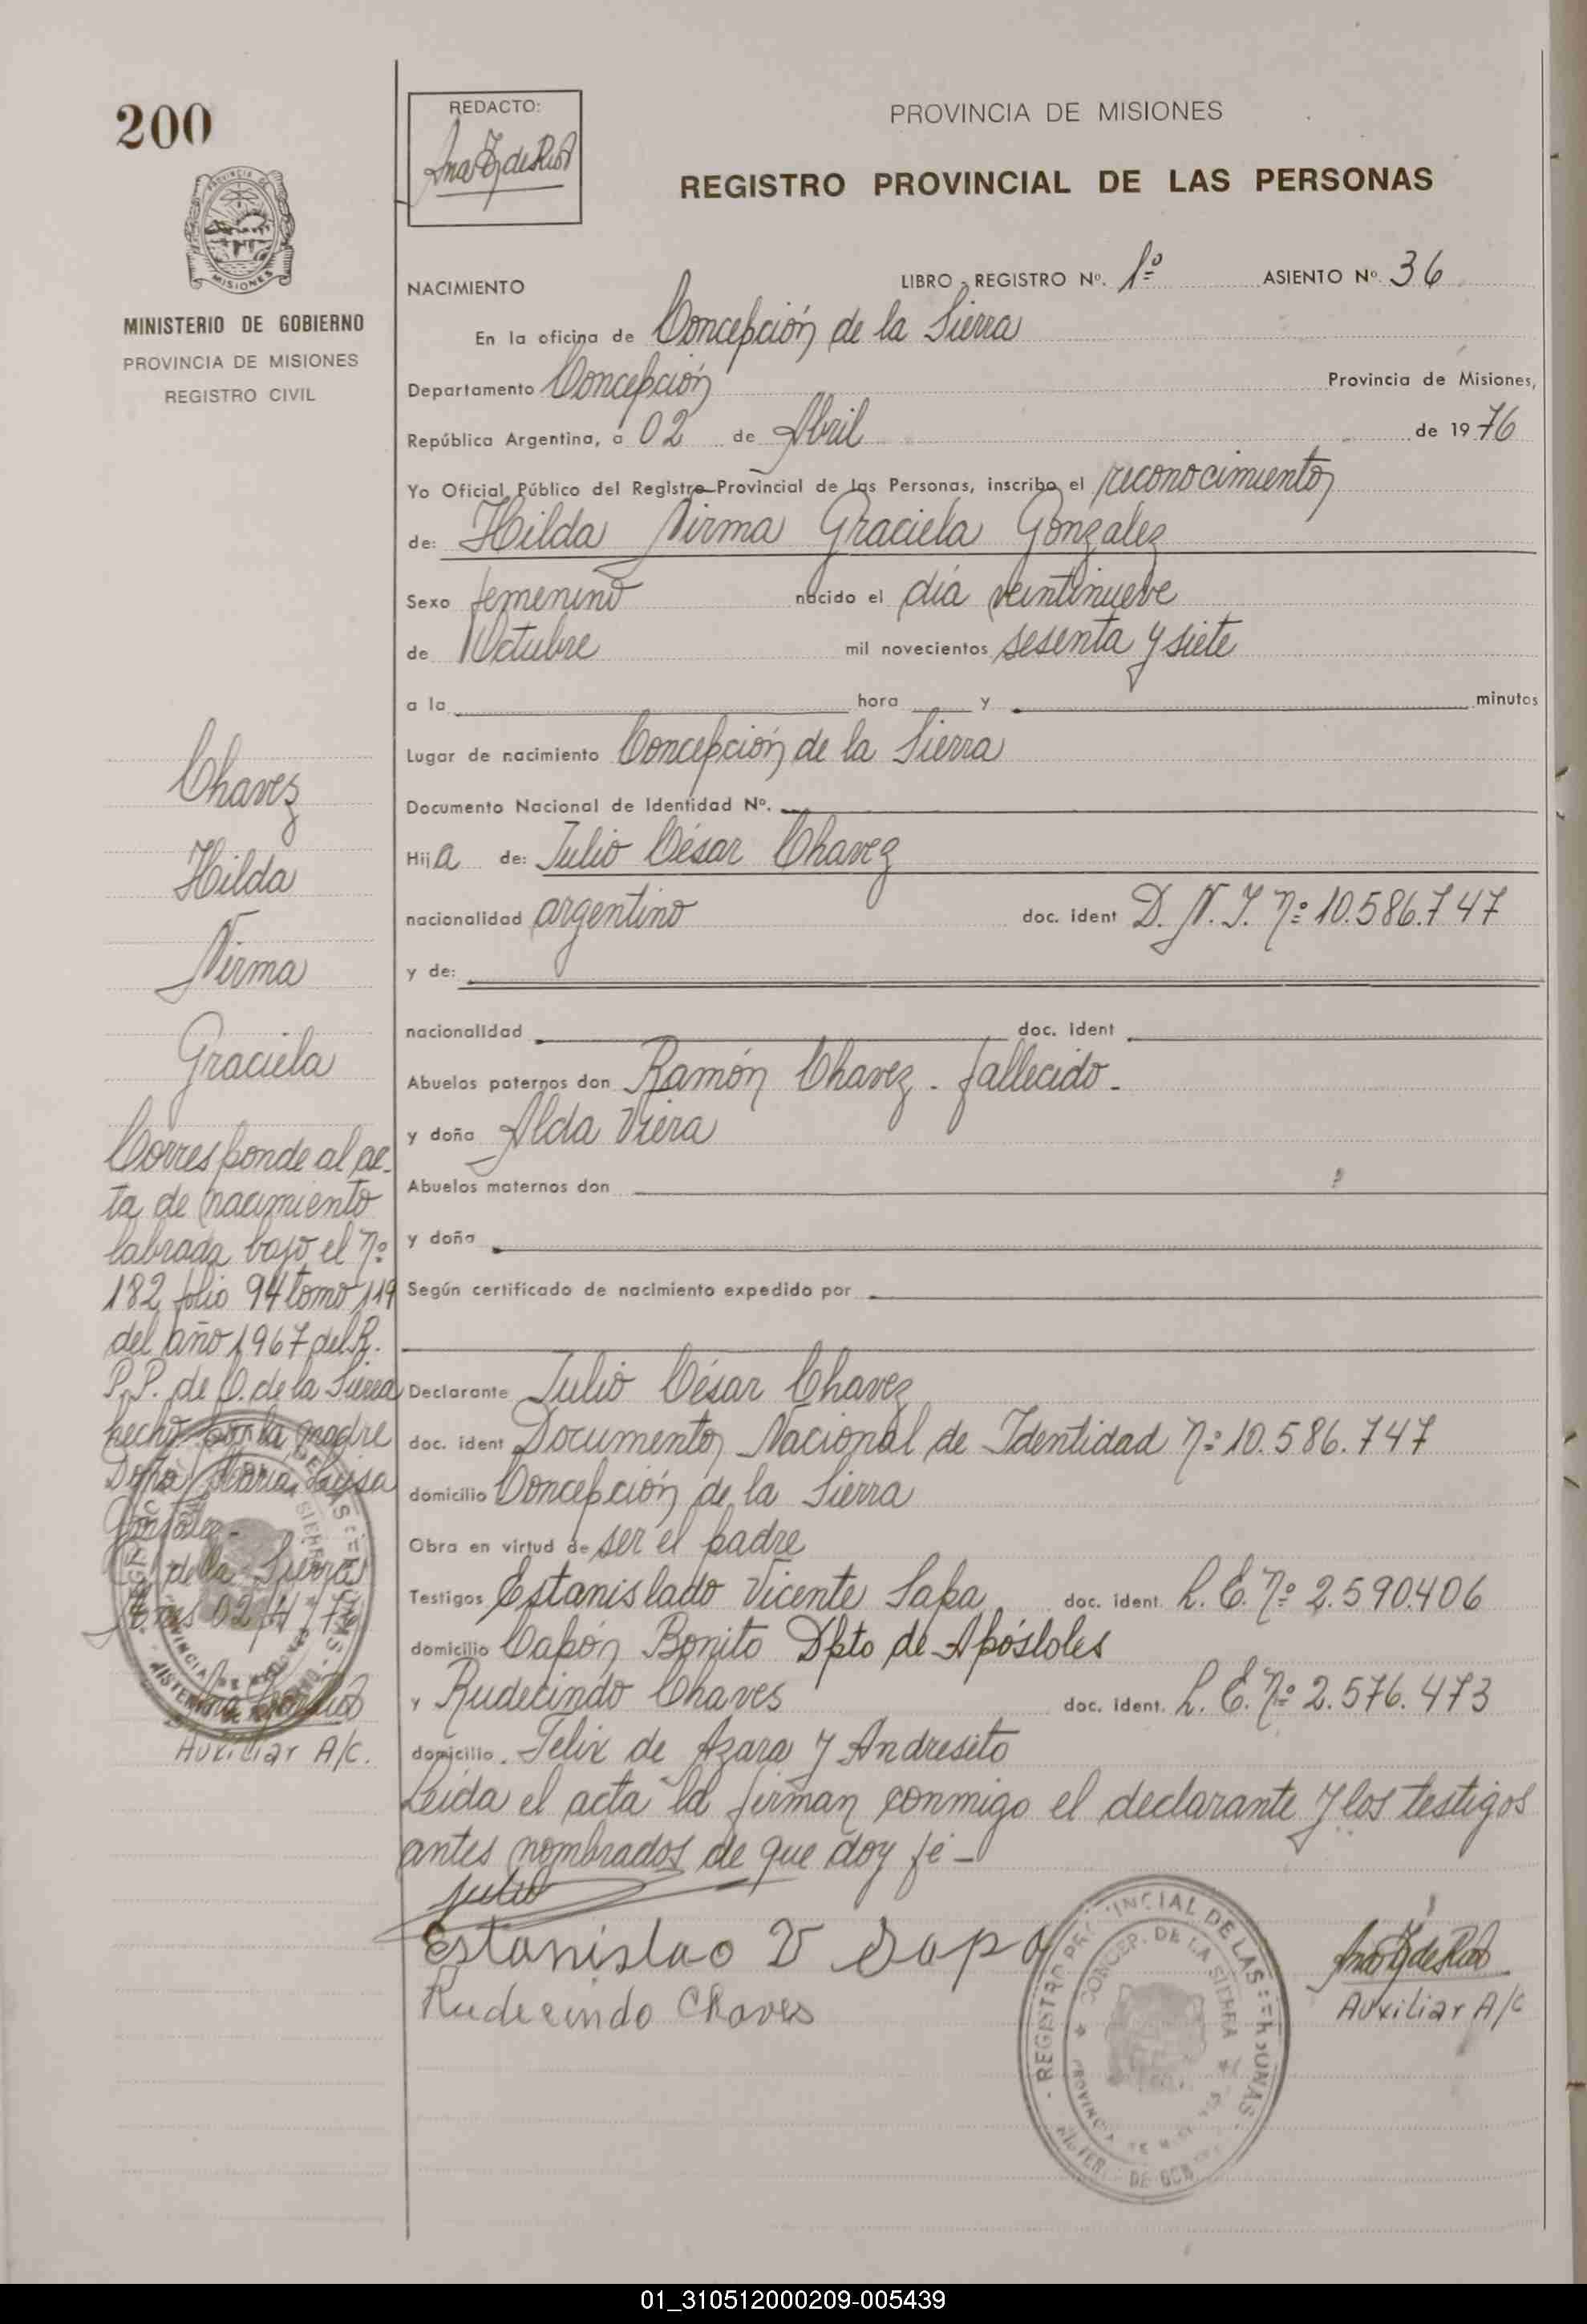 200
REDACTO:
PROVINCIA DE MISIONES
REGISTRO PROVINCIAL DE LAS PERSONAS
MISIONES
MINISTERIO DE GOBIERNO
PROVINCIA DE MISIONES
REGISTRO CIVIL
NACIMIENTO LIBRO - REGISTRO Nº. 1º ASIENTO Nº. 36
En la oficina de Concepción de la Sierra
Departamento Concepción Provincia de Misiones,
República Argentina, a 02 de Abril de 1976
Yo Oficial Público del Registro Provincial de las Personas, inscribo el reconocimiento
de: Hilda Nirma Graciela Gonzalez
Sexo femenino nacido el día veintinueve
de Octubre mil novecientos sesenta y siete
a la hora y minutos
Lugar de nacimiento Concepción de la Sierra
Documento Nacional de Identidad Nº.
Hija de: Julio César Chavez
nacionalidad argentino doc. ident D. N. I. nº 10.586.747
y de:
nacionalidad doc. ident
Abuelos paternos don Ramón Chavez - fallecido -
y doña Alda Viera
Abuelos maternos don
y doña
Según certificado de nacimiento expedido por
Declarante Julio César Chavez
doc. ident Documento Nacional de Identidad nº 10.586.747
domicilio Concepción de la Sierra
Obra en virtud de ser el padre
Testigos Estanislado Vicente Sapa doc. ident. L. E. nº 2.590.406
domicilio Capón Bonito Dpto de Apóstoles
y Rudecindo Chaves doc. ident. L. E. nº 2.576.473
domicilio. Felix de Azara y Andresito
Leida el acta la firman conmigo el declarante y los testigos
antes nombrados de que doy fé -
Julio
Estanislao V Sapa
Rudecindo Chaves
Auxiliar A/C
REGISTRO PROVINCIAL DE LAS PERSONAS
CONCEP. DE LA SIERRA
Chavez
Hilda
Nirma
Graciela
Corresponde al ac-
ta de nacimiento
labrada bajo el nº
182 folio 94 tomo 119
del año 1967 del R.
P.P. de C. de la Sierra
hecho por la madre
Doña María Luisa
Gonzalez -
C. de la Sierra
02/4/76
Auxiliar A/C.
01_310512000209-005439